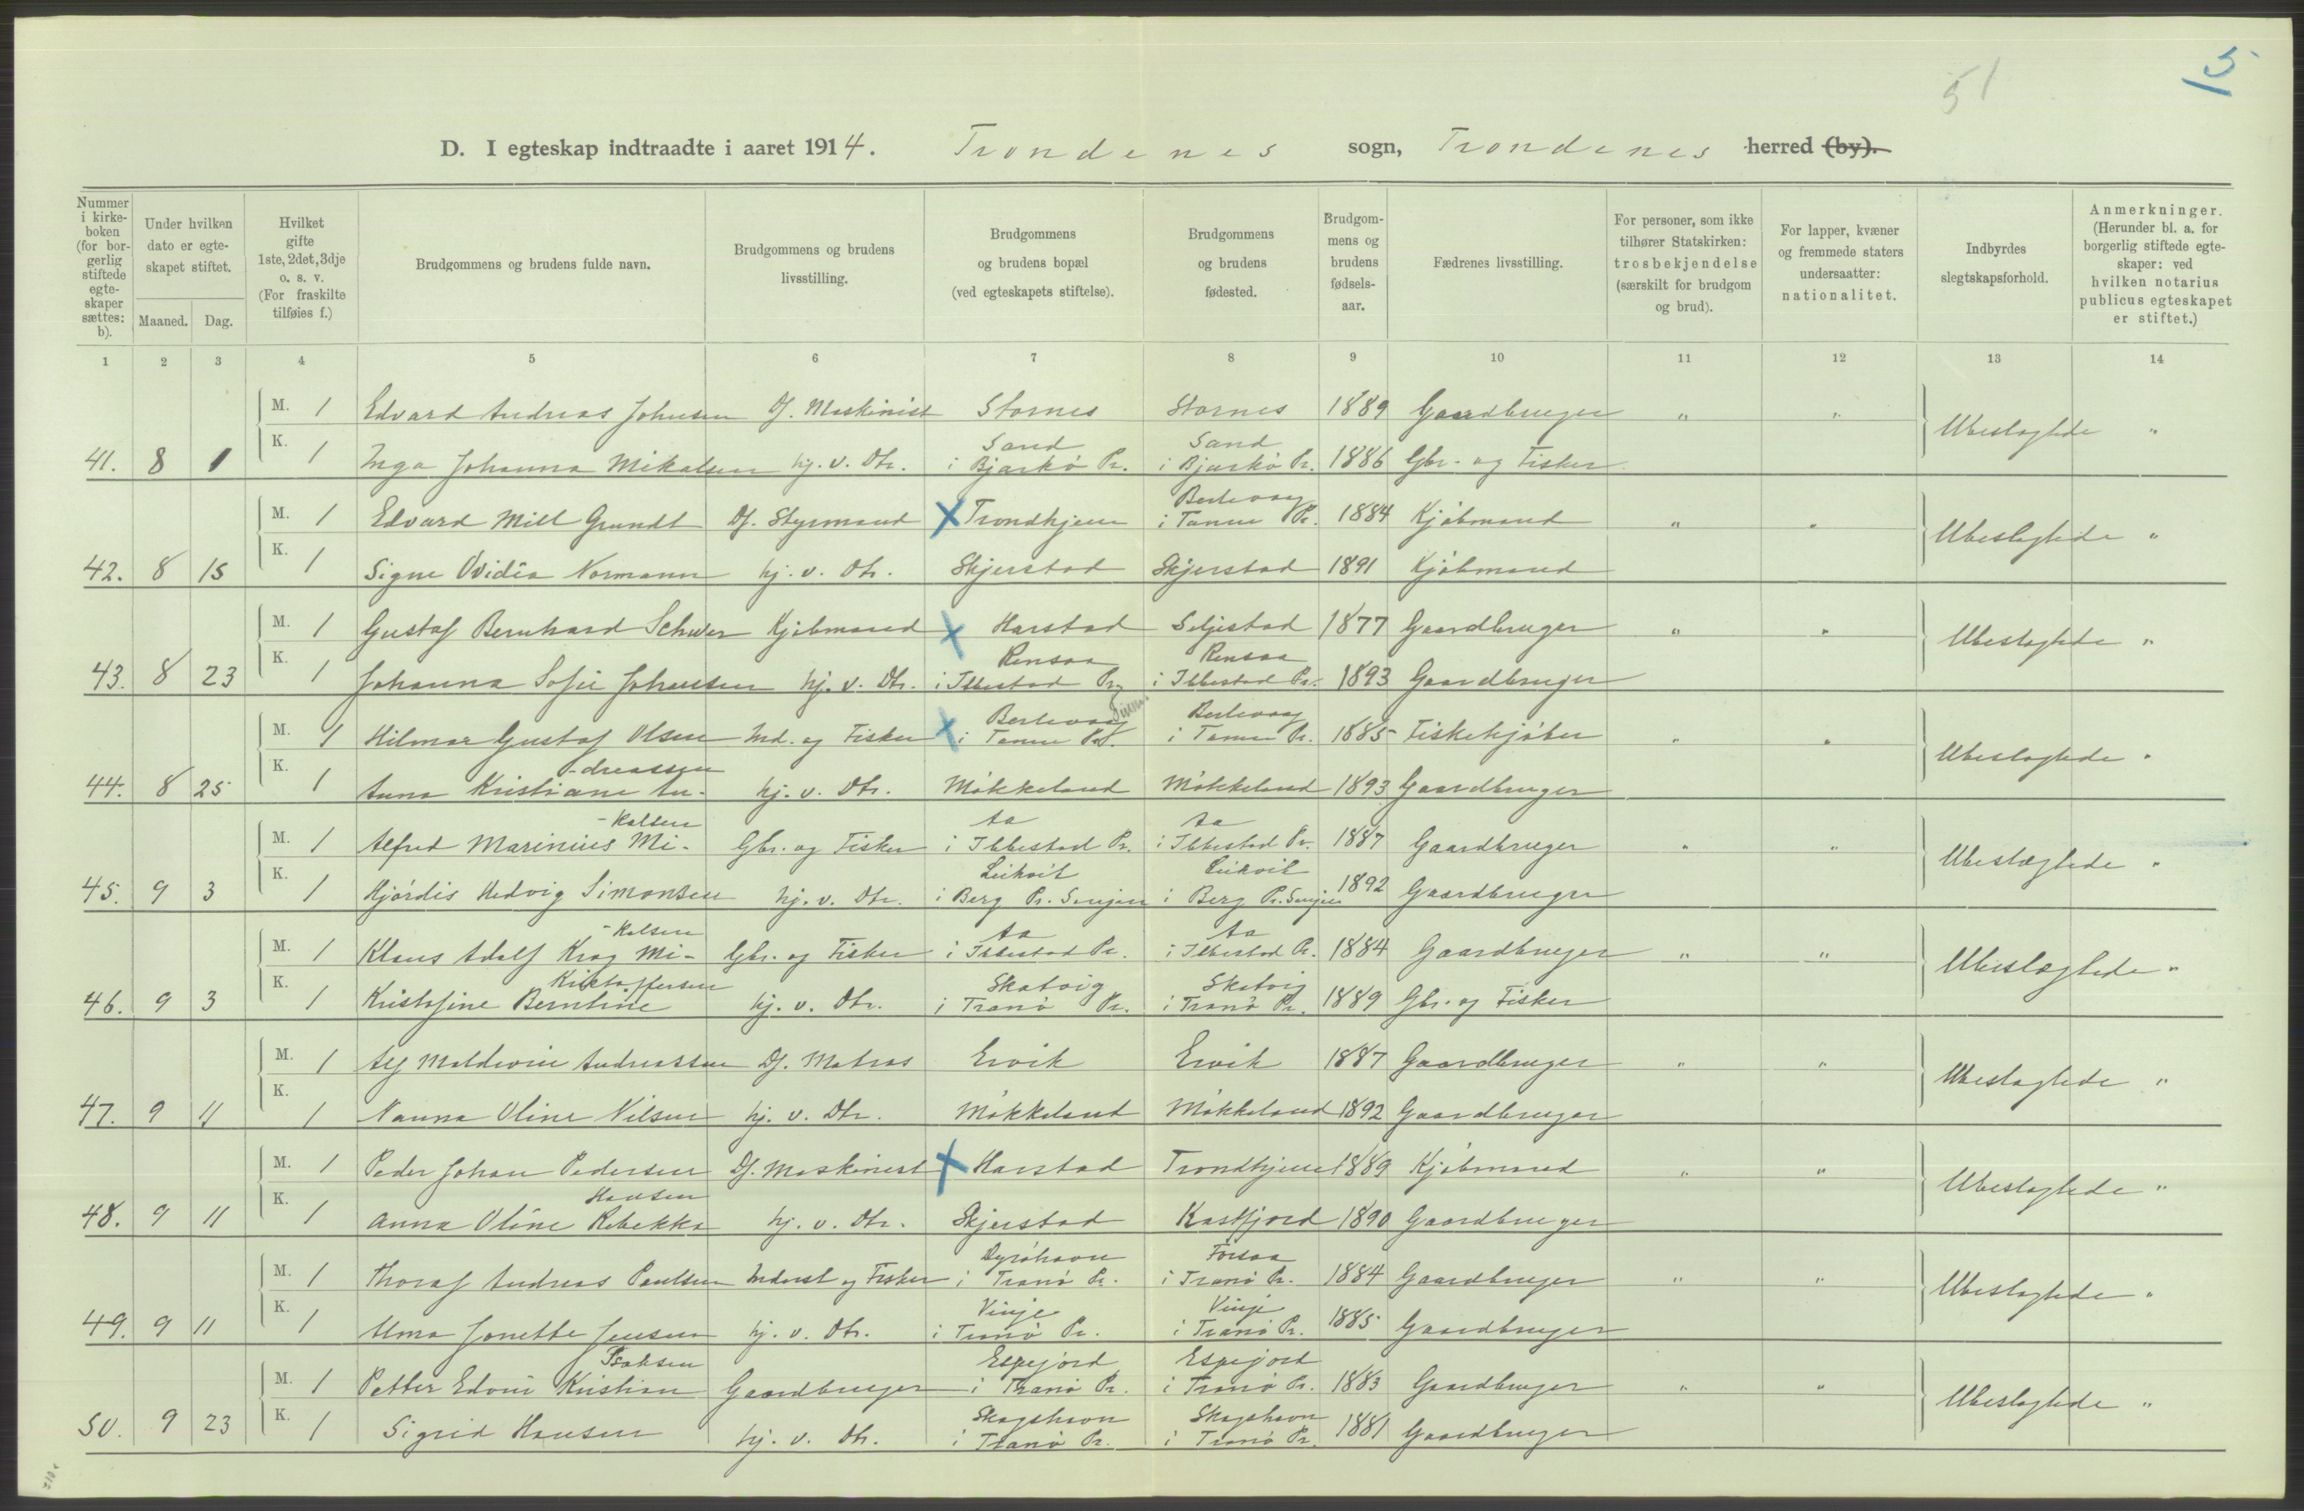 51
5
D. I egteskap indtraadte i aaret 1914. Trondenes sogn, Trondenes herred (by).
Nummer i kirke-boken (for bor-gerlig stiftede egte-skaper sættes: b). | Under hvilken dato er egte-skapet stiftet. Maaned. Dag. | Hvilket gifte 1ste, 2det, 3dje o. s. v. (For fraskilte tilføies f.) | Brudgommens og brudens fulde navn. | Brudgommens og brudens livsstilling. | Brudgommens og brudens bopæl (ved egteskapets stiftelse). | Brudgommens og brudens fødested. | Brudgom-mens og brudens fødsels-aar. | Fædrenes livsstilling. | For personer, som ikke tilhører Statskirken: trosbekjendelse (særskilt for brudgom og brud). | For lapper, kvæner og fremmede staters undersaatter: nationalitet. | Indbyrdes slegtskapsforhold. | Anmerkninger. (Herunder bl. a. for borgerlig stiftede egte-skaper: ved hvilken notarius publicus egteskapet er stiftet.)
1 2 3 4 5 6 7 8 9 10 11 12 13 14
M. 1 Edvard Andreas Johnsen Df. Maskinist Stornes Stornes 1889 Gaardbruger " " Ubeslægtede "
41. 8 1 K. 1 Inga Johanna Mikalsen hj. v. Dtr. Sand i Bjarkö Pr. Sand i Bjarkö Pr. 1886 Gbr. og Fisker
M. 1 Edvard Mill Grundt Df. Styrmand Trondhjem Berlevaag i Tanen Pr. 1884 Kjöbmand " " Ubeslegtede "
42. 8 15 K. 1 Signe Ovidia Normann hj. v. Dtr. Skjerstad Skjerstad 1891 Kjöbmand
M. 1 Gustaf Bernhard Schwer Kjöbmand Harstad Seljestad 1877 Gaardbruger " " Ubeslegtede "
43. 8 23 K. 1 Johanna Sofie Johansen hj. v. Dtr. Rensaa i Ibbestad Pr. Rensaa i Ibbestad Pr. 1893 Gaardbruger
M. 1 Hilmar Gustaf Olsen Ind. og Fisker Berlevaag i Tanen Pr. Berlevaag i Tanen Pr. 1885 Fiskekjöber " " Ubeslegtede "
44. 8 25 K. 1 Anna Kristiane An-dreassen hj. v. Dtr. Mökkeland Mökkeland 1893 Gaardbruger
M. 1 Alfred Marinius Mi-kalsen Gbr. og Fisker Aa i Ibbestad Pr. Aa i Ibbestad Pr. 1887 Gaardbruger " " Ubeslægtede "
45. 9 3 K. 1 Hjördis Hedvig Simonsen hj. v. Dtr. i Berg Pr. Senjen i Berg Pr. Senjen 1892 Gaardbruger
M. 1 Klaus Adolf Krog Mi-kalsen Gbr. og Fisker Aa i Ibbestad Pr. Aa i Ibbestad Pr. 1884 Gaardbruger " " Ubeslægtede "
46. 9 3 K. 1 Kristofine Berntine Kristoffersen hj. v. Dtr. Skatvig i Tranö Pr. Skatvig i Tranö Pr. 1889 Gbr. og Fisker
M. 1 Alf Maldevin Andreassen Df. Matros Ervik Ervik 1887 Gaardbruger " " Ubeslegtede "
47. 9 11 K. 1 Nanna Oline Nilsen hj. v. Dtr. Mökkeland Mökkeland 1892 Gaardbruger
M. 1 Peder Johan Pedersen Df. Maskinist Harstad Trondhjem 1889 Kjöbmand " " Ubeslegtede "
48. 9 11 K. 1 Anna Oline Rebekka Hansen hj. v. Dtr. Skjerstad Kasfjord 1890 Gaardbruger
M. 1 Thoraf Andreas Paulsen Inderst og Fisker Dyröhavn i Tranö Pr. Forsaa i Tranö Pr. 1884 Gaardbruger " " Ubeslegtede "
49. 9 11 K. 1 Alma Jonette Jensen hj. v. Dtr. Vinje i Tranö Pr. Vinje i Tranö Pr. 1885 Gaardbruger
M. 1 Petter Edvin Kristian Isaksen Gaardbruger Espejord i Tranö Pr. Espejord i Tranö Pr. 1883 Gaardbruger " " Ubeslegtede "
50. 9 23 K. 1 Sigrid Hansen hj. v. Dtr. Skogshavn i Tranö Pr. Skogshavn i Tranö Pr. 1881 Gaardbruger